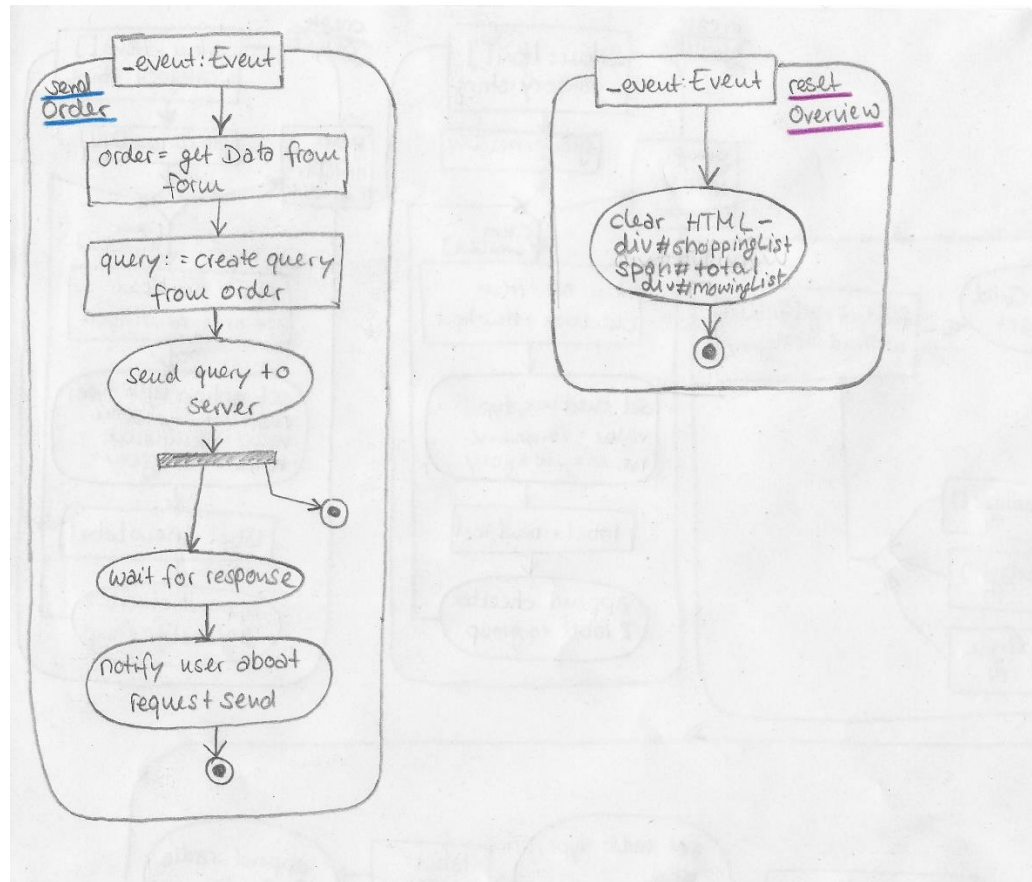 _event:Event
send
Order
order= get Data from
form
query: = create query
from order
send query to
server
wait for response
notify user about
request send
_event:Event
reset
Overview
clear HTML-
div#shoppingList
span#total
div#mowingList